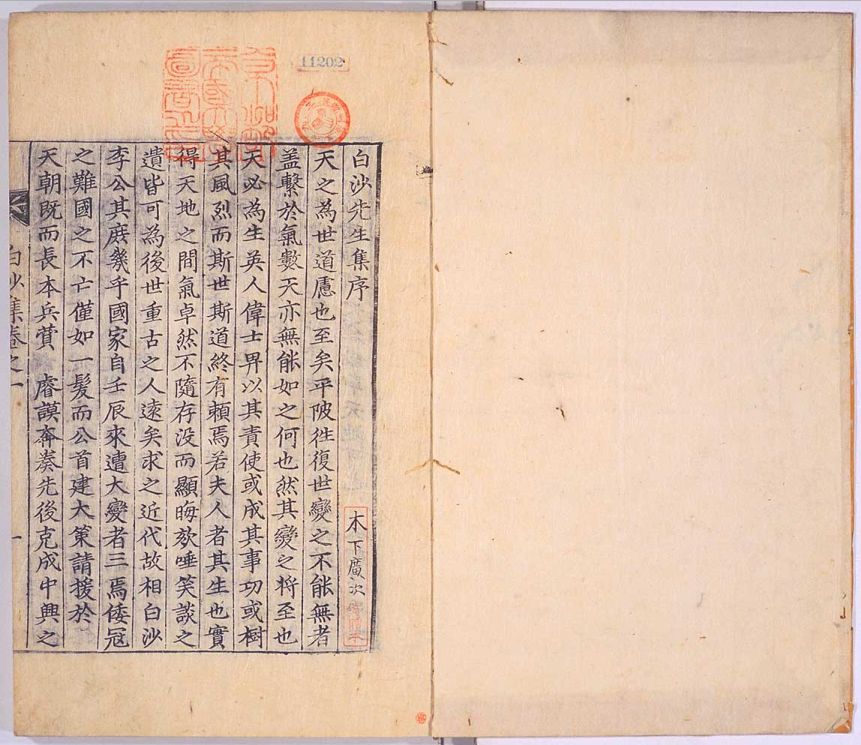 11202
白沙先生集序
木下廣次
天之為世道慮也至矣平陂往復世變之不能無者
盖繫於氣數天亦無能如之何也然其變之將至也
天必為生英人偉士畀以其責使或成其事功或樹
其風烈而斯世斯道終有賴焉若夫人者其生也實
得天地之間氣卓然不隨存没而顯晦欬唾笑談之
遺皆可為後世重古之人遠矣求之近代故相白沙
李公其庶幾乎國家自壬辰來遭大變者三焉倭冦
之難國之不亡僅如一髮而公首建大策請援於
天朝既而長本兵賛 睿謨奔奏先後克成中興之
白沙集卷之一 一